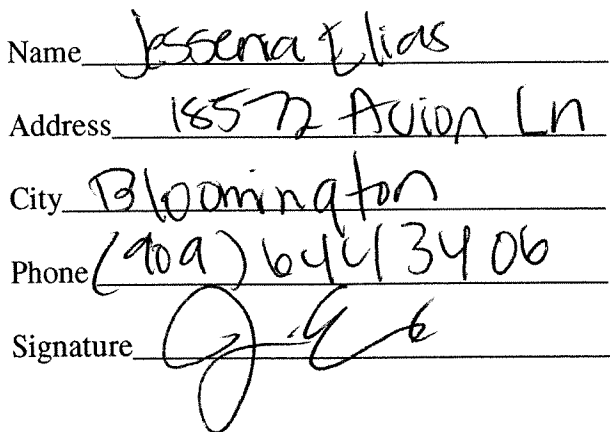 Name Jessenia Elias
Address 18572 Avion Ln
City Bloomington
Phone (909) 644 3406
Signature